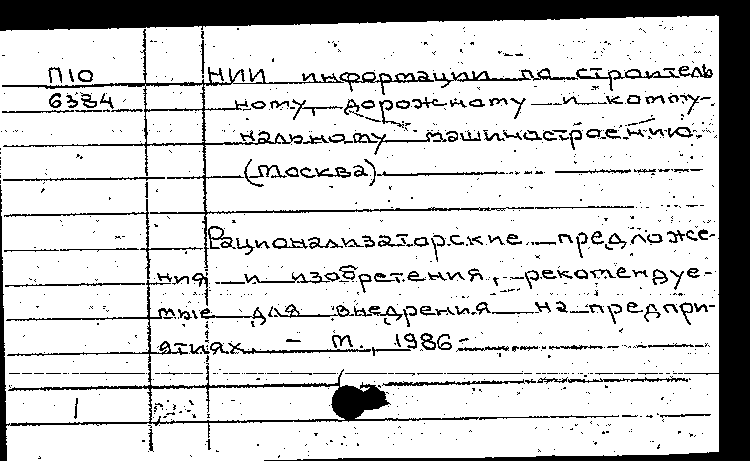 П10 НИИ информации по строитель
6384 ному, дорожному и комму-
нальному машиностроению.
(Москва).
Рационализаторские предложе-
ния и изобретения, рекомендуе-
мые для внедрения на предпри-
ятиях. - М., 1986-
1